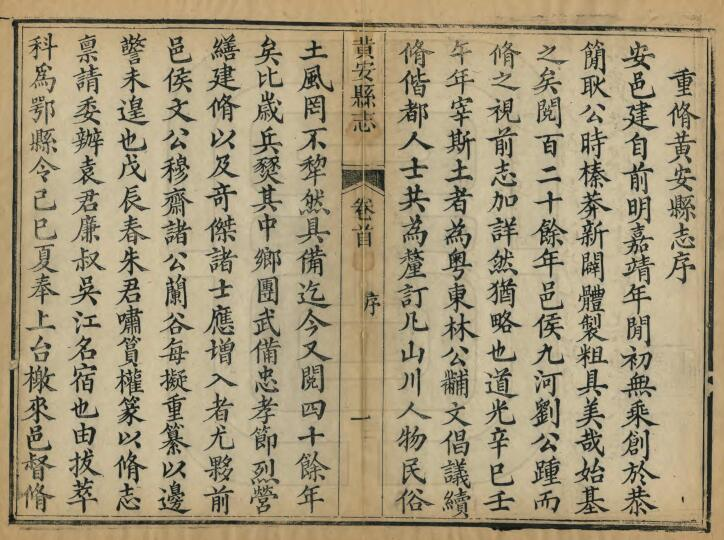 重脩黃安縣志序
安邑建自前明嘉靖年閒初無乘創於恭
簡耿公時榛莽新闢體製粗具美哉始基
之矣閱百二十餘年邑侯九河劉公踵而
脩之視前志加詳然猶略也道光辛巳壬
午年宰斯土者為粵東林公黼文倡議續
脩偕都人士共為釐訂凡山川人物民俗
黃安縣志
卷首
序
一
土風罔不犂然具備迄今又閱四十餘年
矣比歲兵燹其中鄉團武備忠孝節烈營
繕建脩以及奇傑諸士應增入者尤夥前
邑侯文公穆齋諸公蘭谷每擬重纂以邊
警未遑也戊辰春朱君嘯篔權篆以脩志
禀請委辦袁君廉叔吳江名宿也由拔萃
科為鄂縣令己巳夏奉上台檄來邑督脩